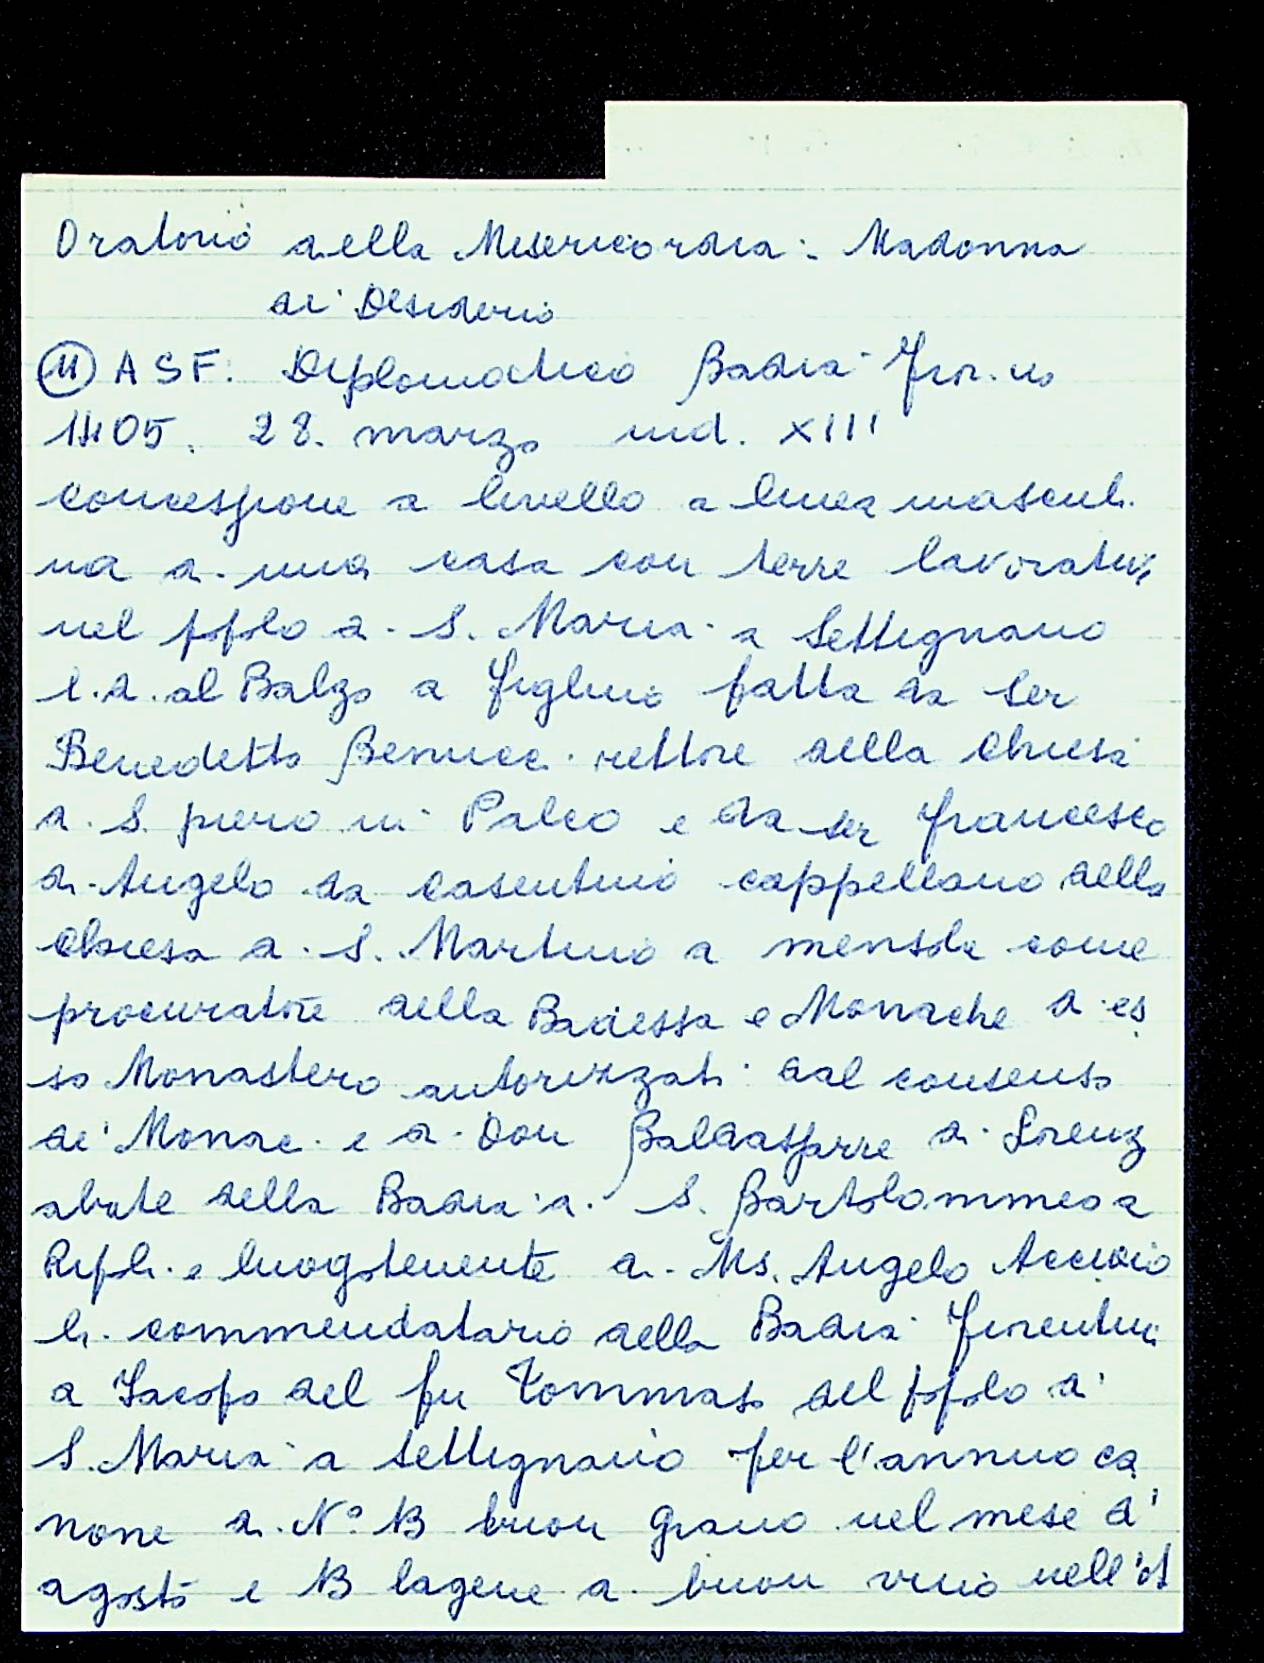 Oratorio della Misericordia: Madonna
di Desiderio
(11) ASF. Diplomatico Badia Fior.na
1405. 28. marzo ind. XIII
concessione a livello a linea masculi
na di una casa con terre lavorative
nel popolo di S. Maria a Settignano
l.d. al Balzo a Figlino fatta da Ser
Benedetto Benucci rettore della Chiesa
di S. Piero in Palco e da ser Francesco
di Angelo da Casentino cappellano della
Chiesa di S. Martino a mensola come
procuratori della Badessa e Monache di es
so Monastero autorizzati dal consenso
di Monac. e di Don Baldassarre di Lorenz
abate della Badia di S. Bartolommeo a
Ripoli e luogotenente di Ms. Angelo Acciaio
li commendatario della Badia Fiorentin
a Iacopo del fu Tommaso del popolo di
S. Maria a Settignano per l'annuo ca
none di N° 13 buon grano nel mese d'
agosto e 13 lagene di buon vino nell'ot